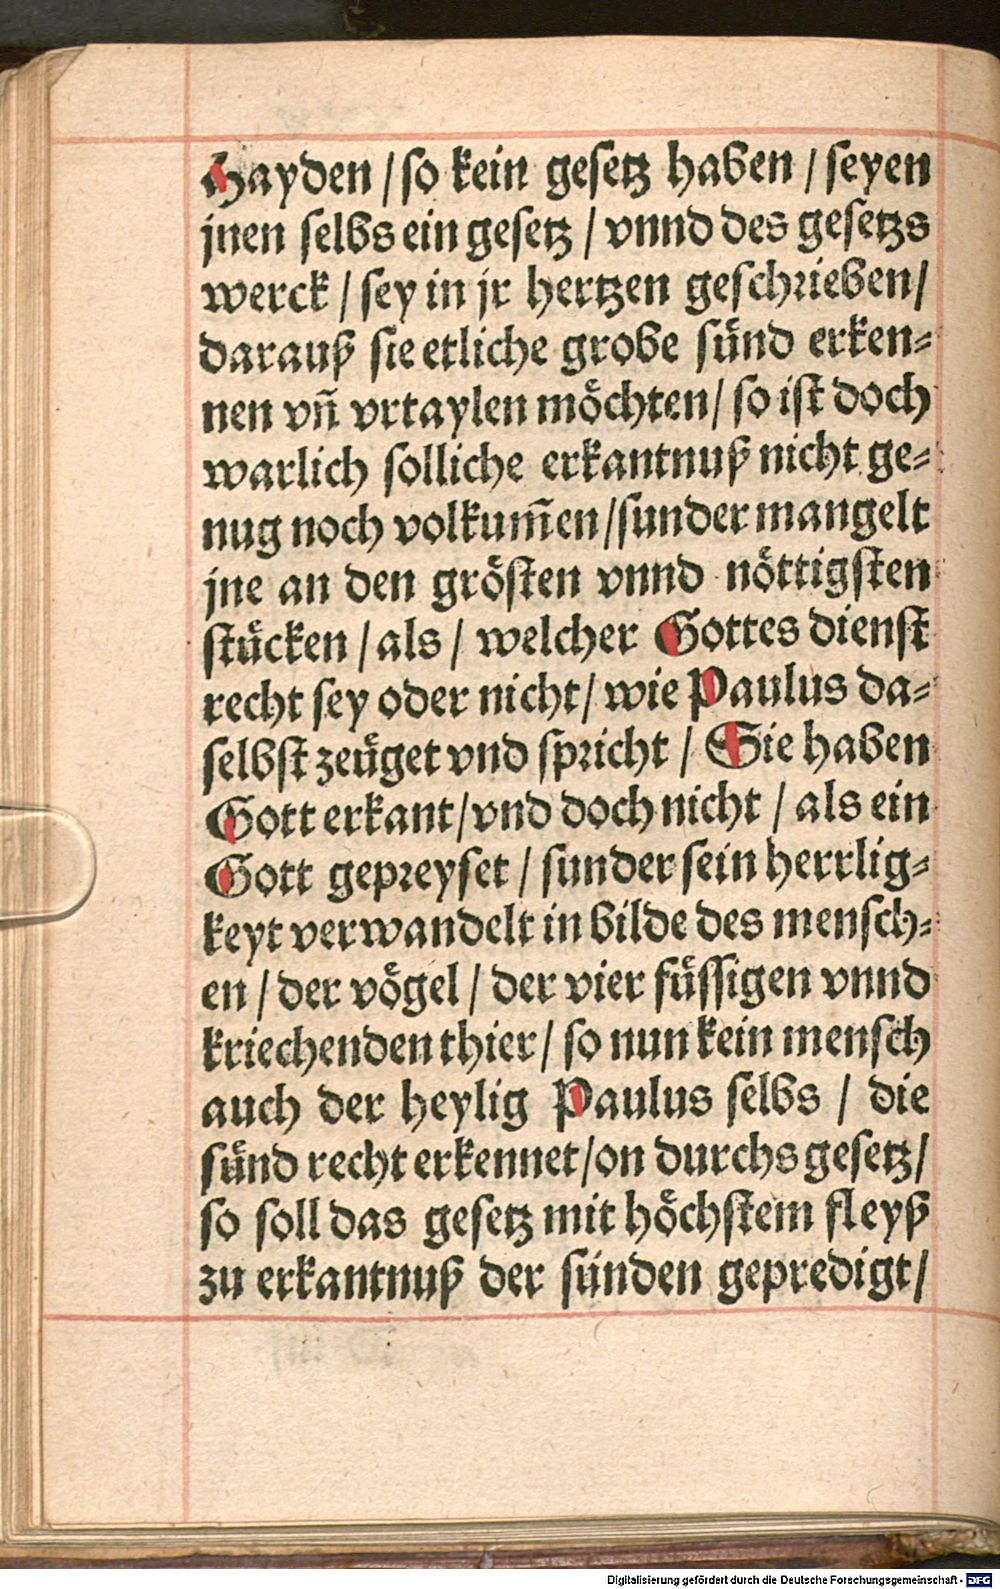 Hayden / so kein gesetz haben / seyen
jnen selbs ein gesetz / vnnd des gesetzs
werck / sey in jr hertzen geschrieben /
darauß sie etliche grobe sünd erken⸗
nen vñ vrtaylen möchten / so ist doch
warlich solliche erkantnuß nicht ge⸗
nug noch volkum̃en / sunder mangelt
jne an den grösten vnnd nöttigsten
stücken / als / welcher Gottes dienst
recht sey oder nicht / wie Paulus da⸗
selbst zeüget vnd spricht / Sie haben
Gott erkant / vnd doch nicht / als ein
Gott gepreyset / sunder sein herrlig⸗
keyt verwandelt in bilde des mensch⸗
en / der vögel / der vier füssigen vnnd
kriechenden thier / so nun kein mensch
auch der heylig Paulus selbs / die
sünd recht erkennet / on durchs gesetz /
so soll das gesetz mit höchstem fleyß
zu erkantnuß der sünden gepredigt /
Digitalisierung gefördert durch die Deutsche Forschungsgemeinschaft - DFG